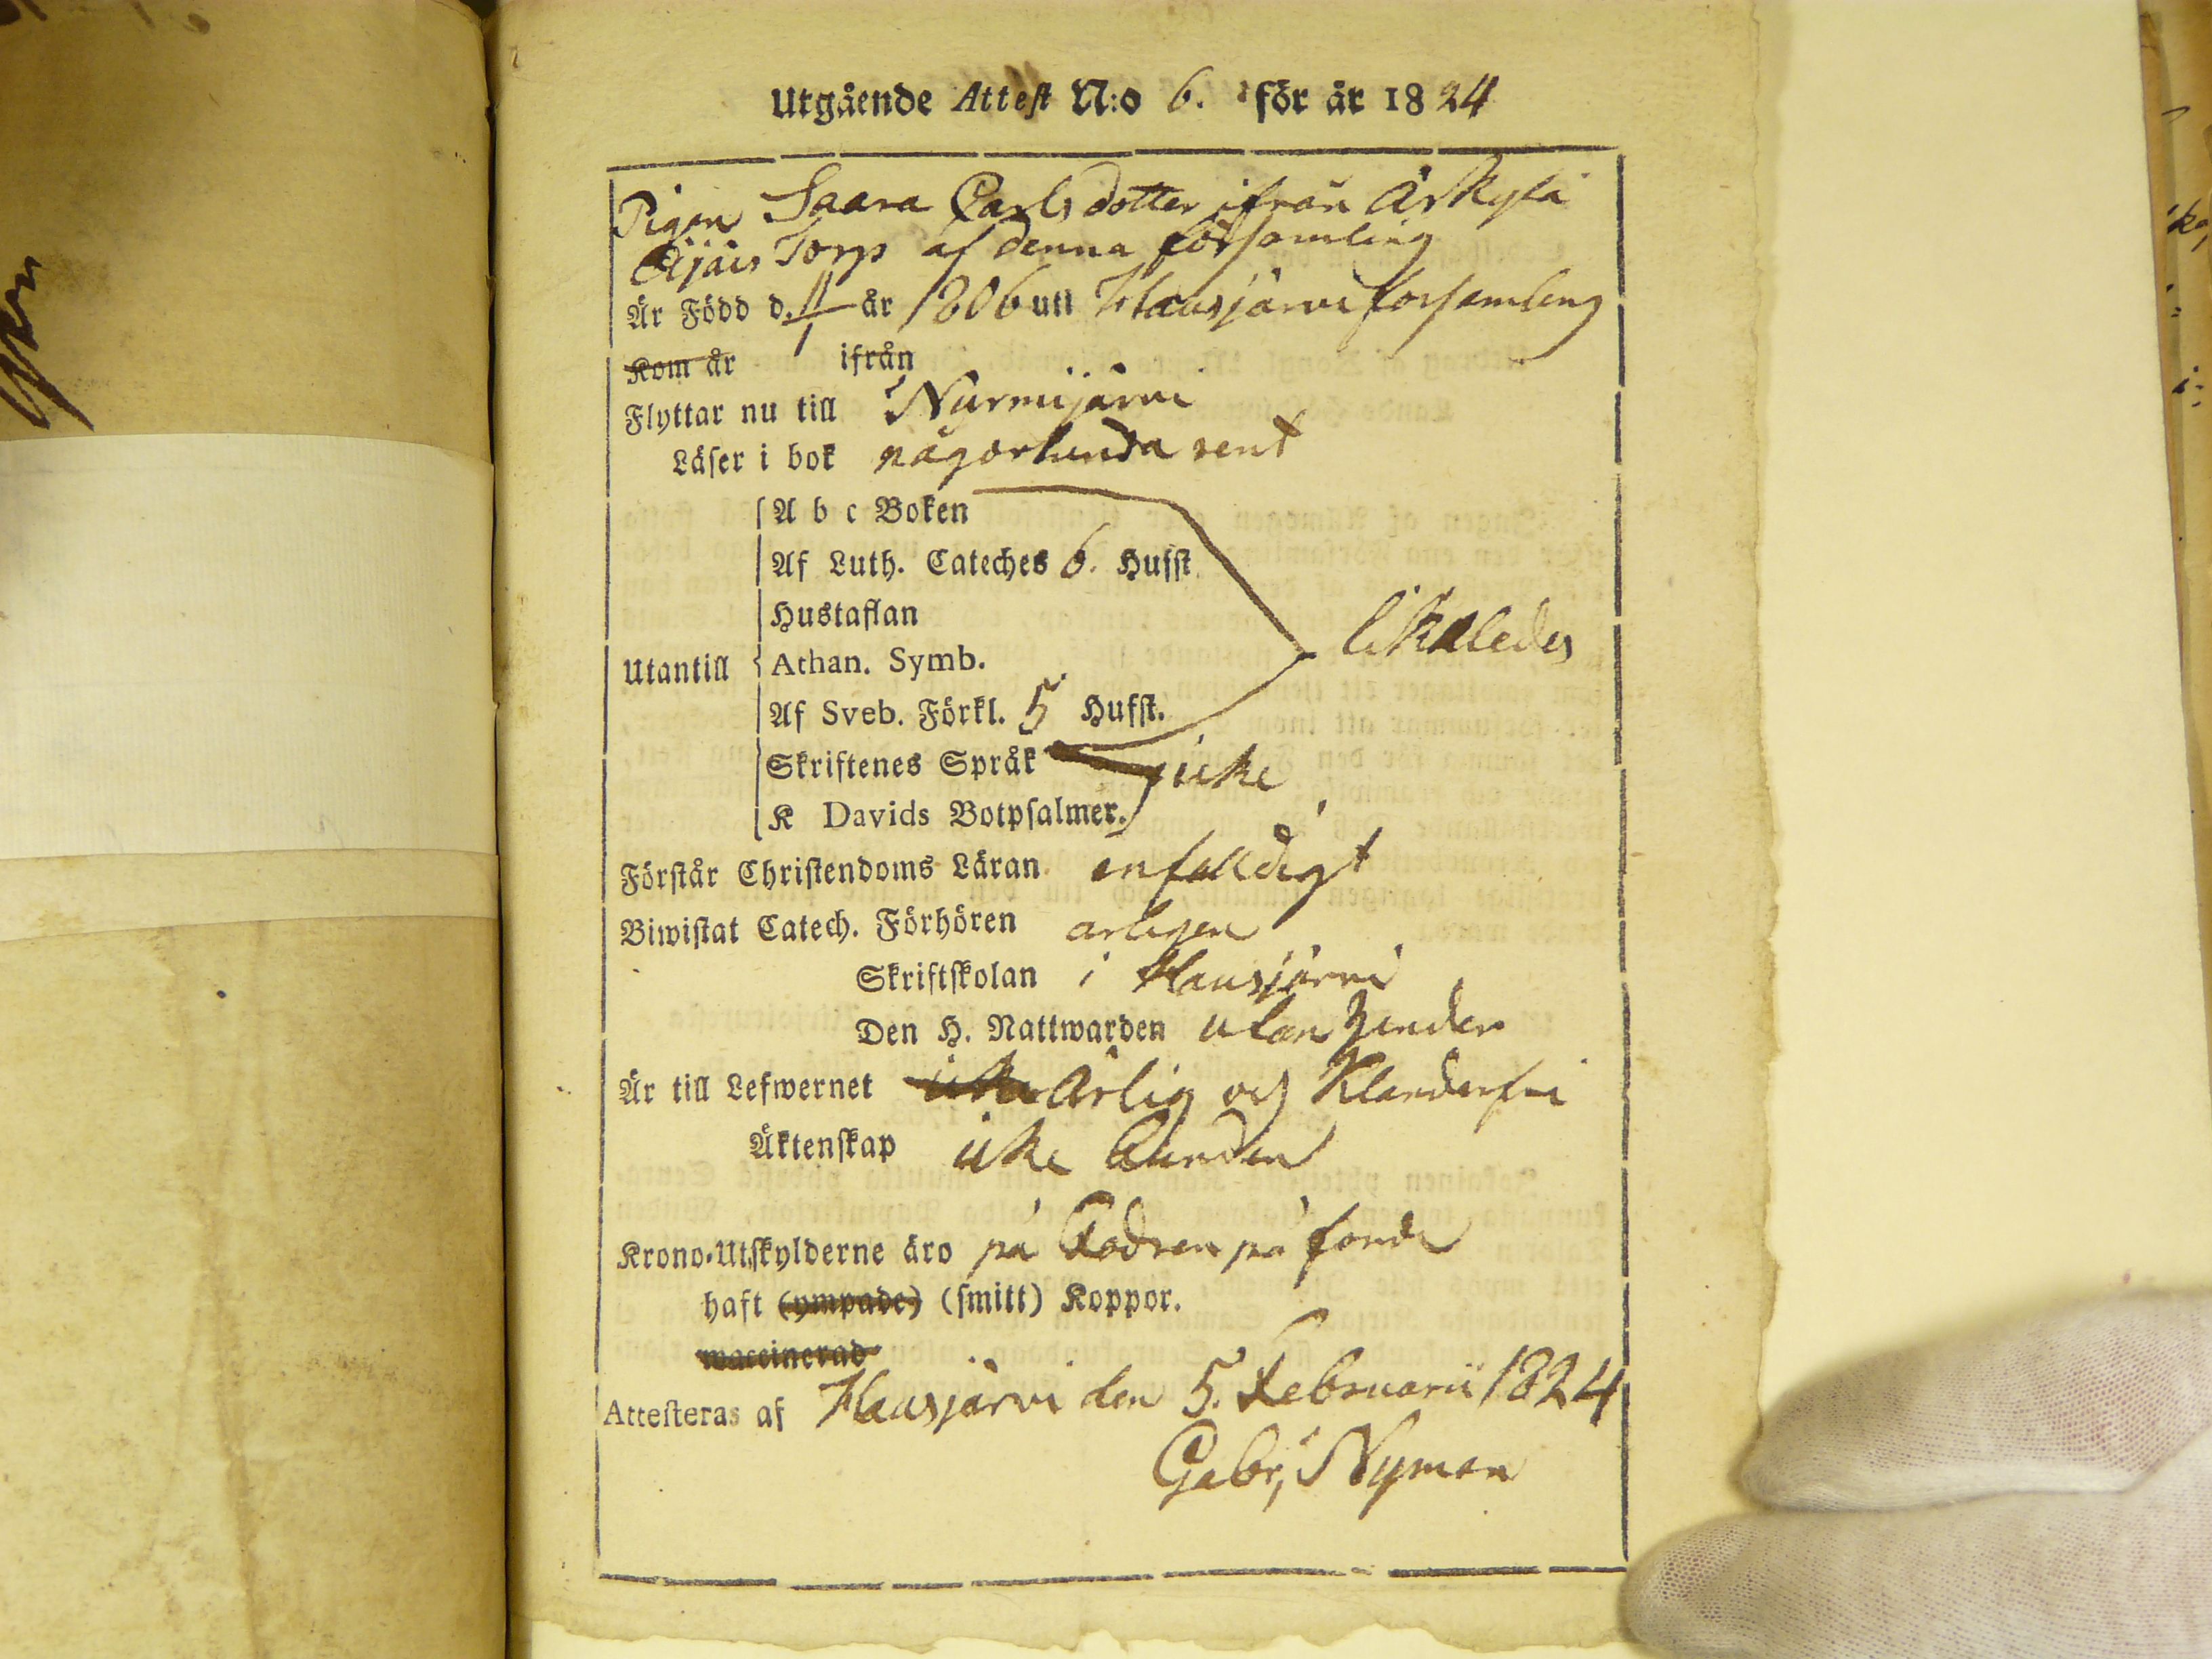 Utgående Attest N:o 6. för år 1824
Pigan Saara Carlsdotter ifrån Ärkylä
Äijäis Torp af denna församling
Är Född d. 11/1 år 1806 uti Hausjärvi församling
Kom år ifrån
Flyttar nu till Nurmijärvi
Läser i bok någorlunda rent
A b c Boken
Af Luth. Cateches 6. Hufst
Hustaflan
likaledes
Utantill Athan. Symb.
Af Sveb. Förkl. 5 Hufst.
Skriftenes Språk
icke
K Davids Botpsalmer.
Förstår Christendoms Läran enfalldigt
Biwistat Catech. Förhören årligen
Skriftskolan i Hausjärvi
Den H. Nattwarden utan hinder
Är till Lefwernet ärlig och Klanderfri
Äktenskap icke bunden
Krono-Utskylderne äro på Fadren på förde
haft (ympade) (smitt) Koppor.
waccinerad
Attesteras af Hausjärvi den 5. Februarii 1824
Gabr; Nyman